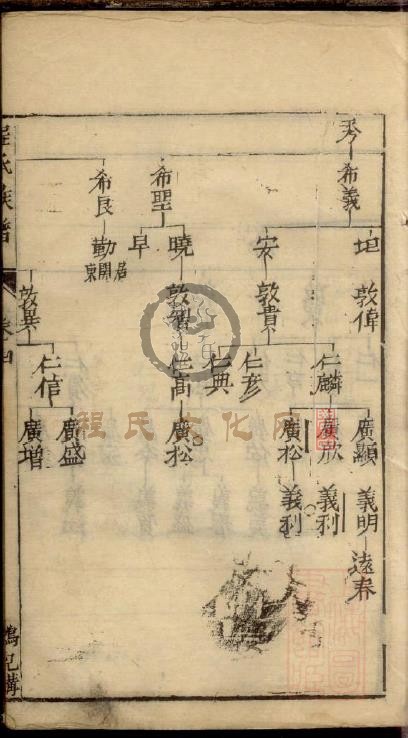 秀 希義
坦 敦偉
仁麟
廣顯 義明 遠春
義利
廣松 義利
安 敦貴
仁彥
仁典
希聖
曉 敦智 仁高 廣松
早
希良 勤 居開東
敦異
仁信
廣盛
廣增
程氏族譜
卷四
程氏文化网